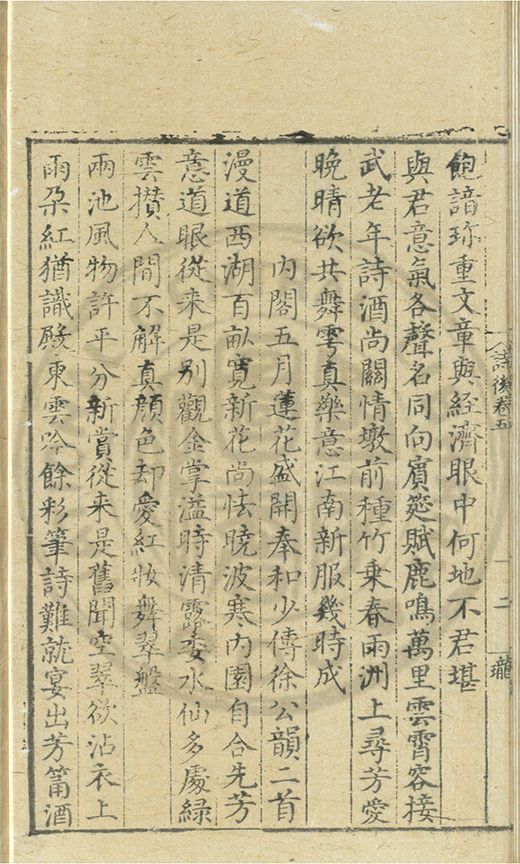 飽諳珎重文章與經濟眼中何地不君堪
與君意氣各聲名同向賓筵賦鹿鳴萬里雲霄容接
武老年詩酒尚關情墩前種竹乗春雨洲上尋芳愛
晚晴欲共舞雩真樂意江南新服幾時成
内閣五月蓮花盛開奉和少傅徐公韻二首
漫道西湖百畝寛新花尚怯曉波寒内園自合先芳
意道眼從来是别觀金掌溢時清露委水仙多處緑
雲攅人間不解真顔色却愛紅妝舞翠盤
兩池風物許平分新賞從来是舊聞空翠欲沾衣上
雨朶紅猶識殿東雲吟餘彩筆詩難就宴出芳筩酒
詩後卷五
二